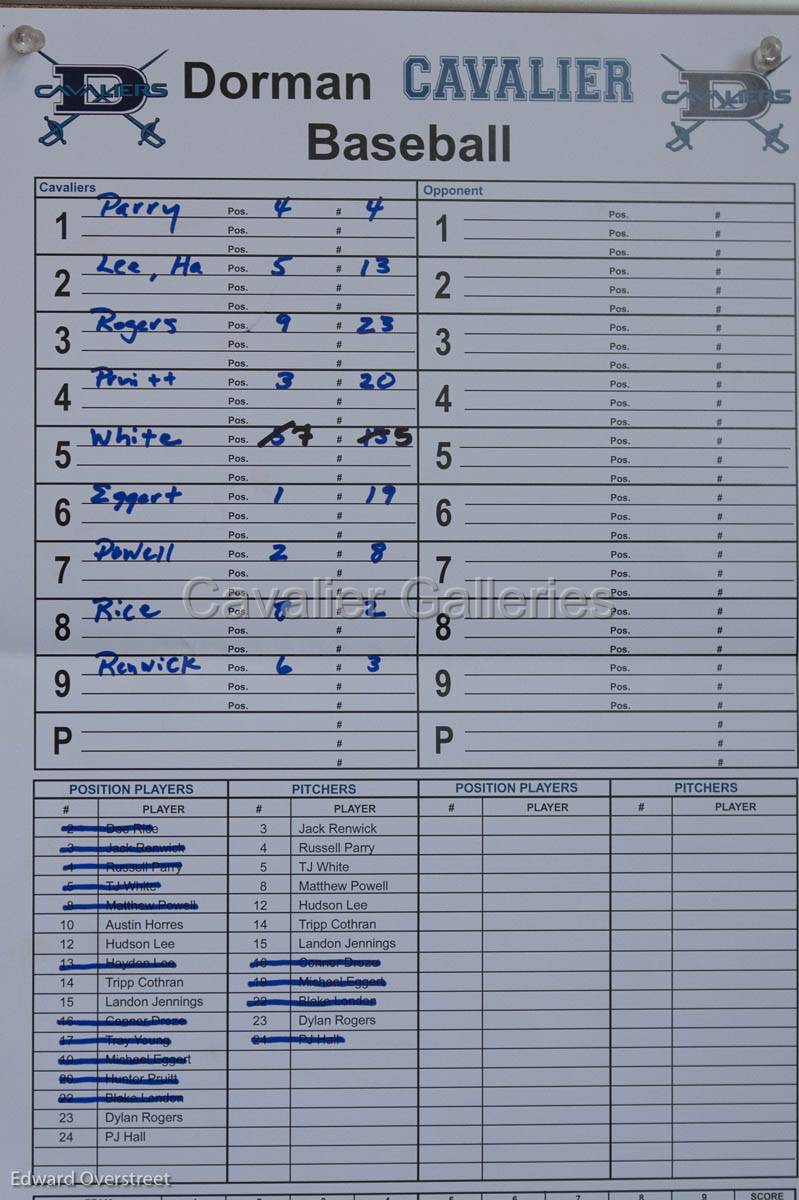 SCORE
D CAVALIERS Dorman CAVALIER D CAVALIERS
Baseball
Cavaliers Opponent
1 Parry Pos. 4 # 4 1 Pos. #
Pos. # Pos. #
Pos. # Pos. #
2 Lee, Ha Pos. 5 # 13 2 Pos. #
Pos. # Pos. #
Pos. # Pos. #
3 Rogers Pos. 9 # 23 3 Pos. #
Pos. # Pos. #
Pos. # Pos. #
4 Pruitt Pos. 3 # 20 4 Pos. #
Pos. # Pos. #
Pos. # Pos. #
5 White Pos. 7 # 5 5 Pos. #
Pos. # Pos. #
Pos. # Pos. #
6 Eggert Pos. 1 # 19 6 Pos. #
Pos. # Pos. #
Pos. # Pos. #
7 Powell Pos. 2 # 8 7 Pos. #
Pos. # Pos. #
Pos. # Pos. #
Cavalier Galleries
8 Rice Pos. 8 # 2 8 Pos. #
Pos. # Pos. #
Pos. # Pos. #
9 Renwick Pos. 6 # 3 9 Pos. #
Pos. # Pos. #
Pos. # Pos. #
P # P #
# #
# #
POSITION PLAYERS PITCHERS POSITION PLAYERS PITCHERS
# PLAYER # PLAYER # PLAYER # PLAYER
2 Dee Rice 3 Jack Renwick
3 Jack Renwick 4 Russell Parry
4 Russell Parry 5 TJ White
5 TJ White 8 Matthew Powell
8 Matthew Powell 12 Hudson Lee
10 Austin Horres 14 Tripp Cothran
12 Hudson Lee 15 Landon Jennings
13 Hayden Lee 16 Connor Droze
14 Tripp Cothran 19 Michael Eggert
15 Landon Jennings 22 Blake London
16 Connor Droze 23 Dylan Rogers
17 Tray Young 24 PJ Hall
19 Michael Eggert
20 Hunter Pruitt
22 Blake London
23 Dylan Rogers
24 PJ Hall
Edward Overstreet
5 6 7 8 9 SCORE